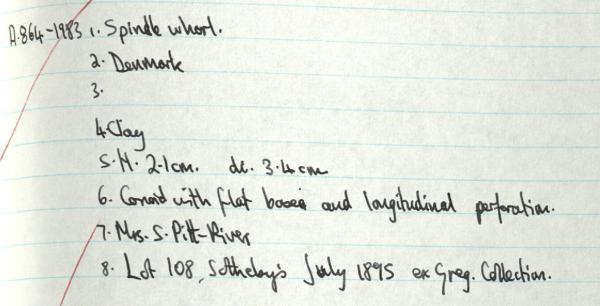 A.864-1983 1. Spindle whorl.
2. Denmark
3.
4. Clay
5. H. 2.1cm. di. 3.4cm
6. Conoid with flat bases and longitudinal perforation.
7. Mrs. S. Pitt-Rivers
8. Lot 108, Sotheby's July 1895 ex Greg. Collection.